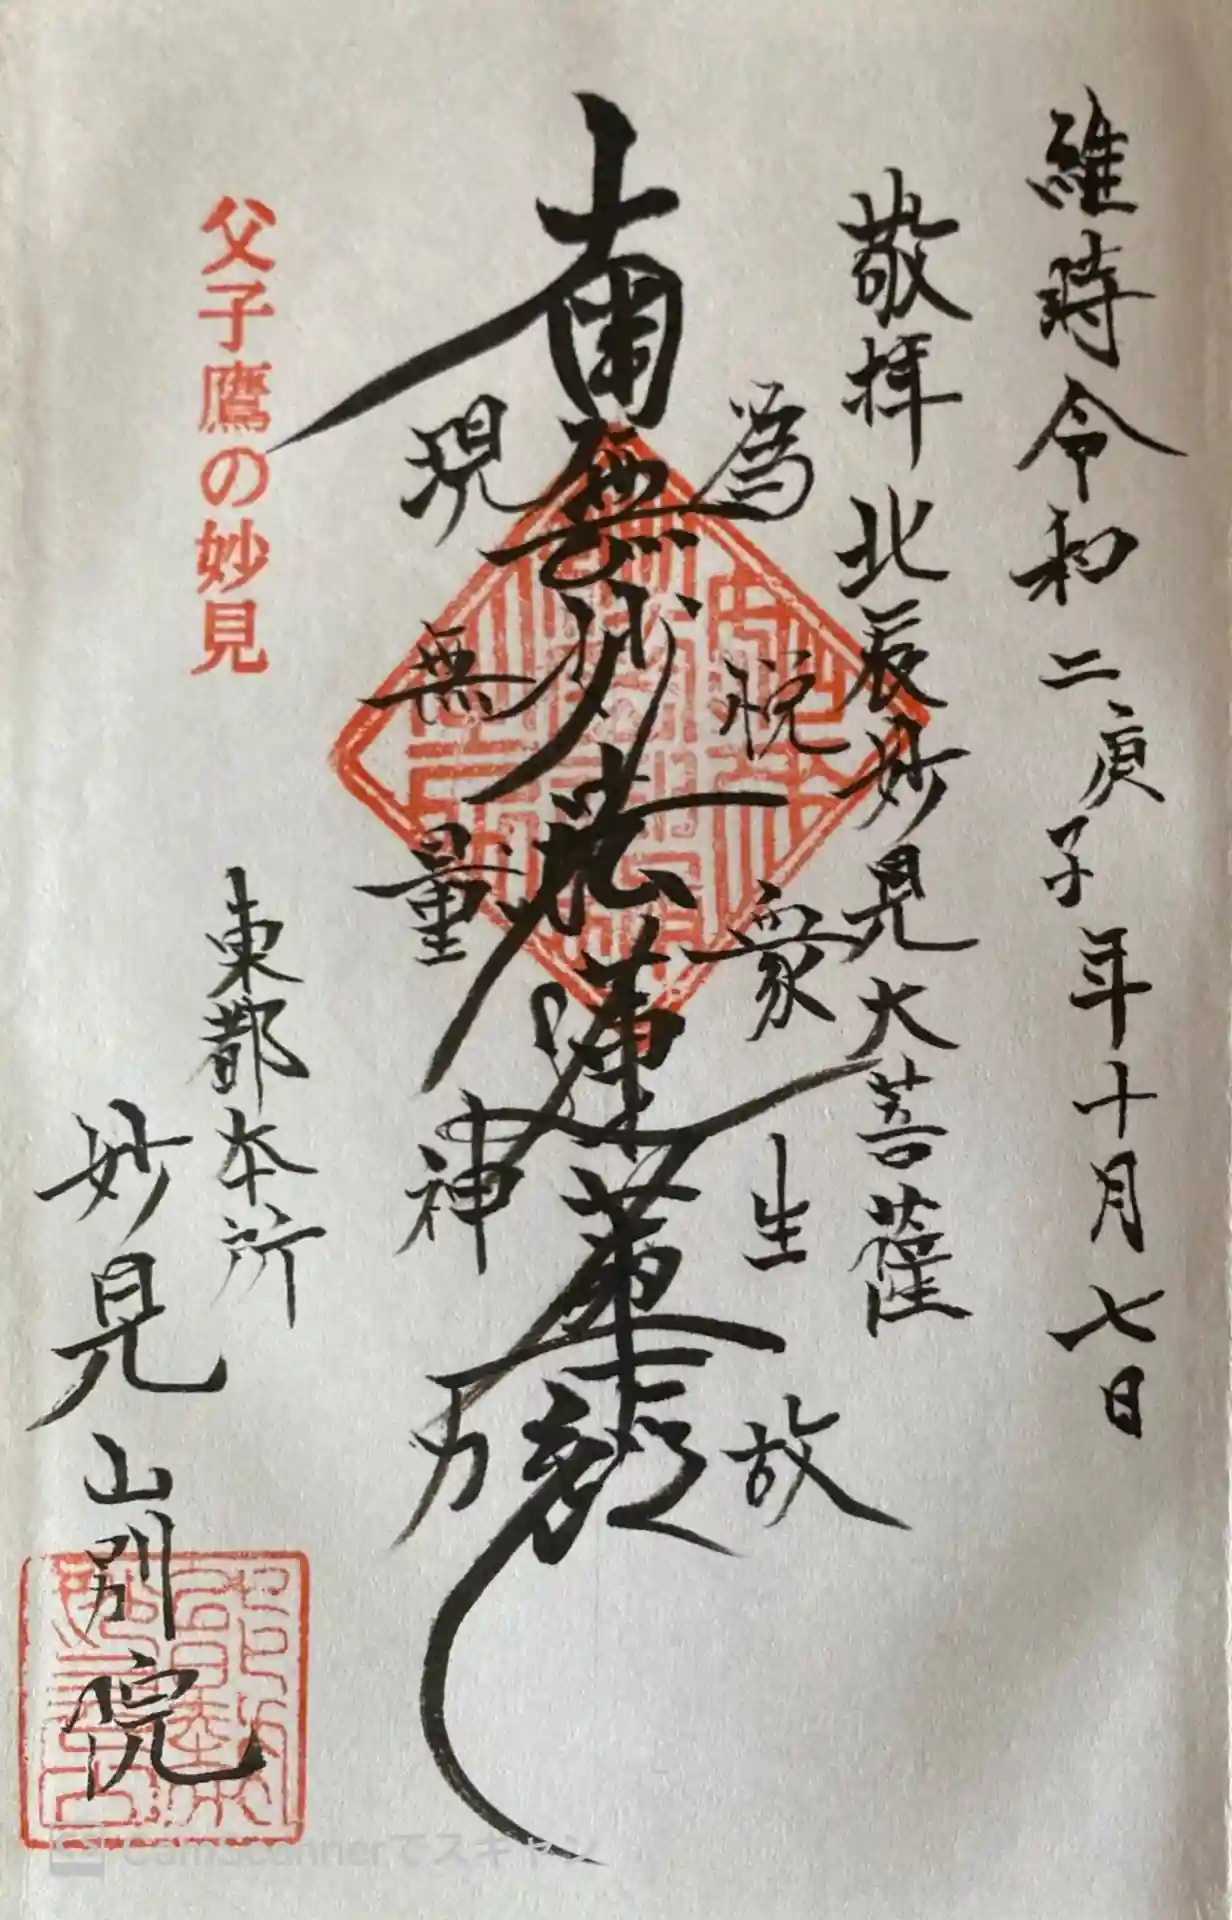 維時令和二庚子年十月七日
敬拝北辰妙見大菩薩
為脱衆生故
南無妙法蓮華経
現無量神力
父子鷹の妙見
東都本所
妙見山別院
CamScannerでスキャン